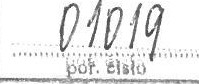 01019
poř. číslo